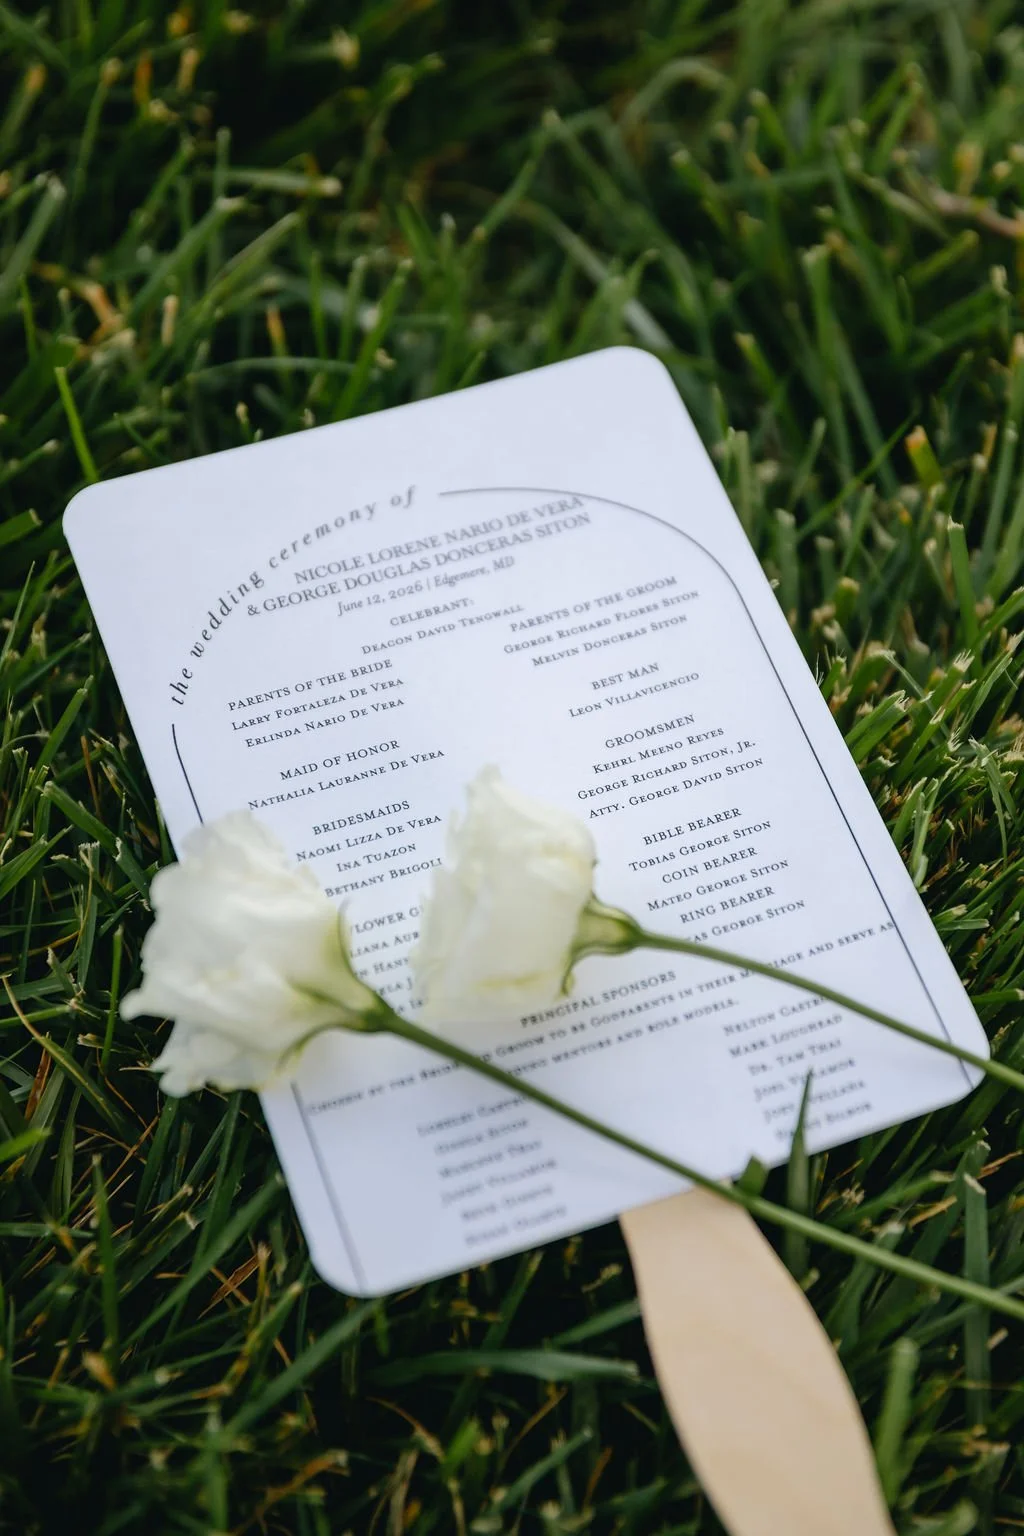 the wedding ceremony of
NICOLE LORENE NARIO DE VERA
& GEORGE DOUGLAS DONCERAS SITON
June 12, 2026 | Edgemere, MD
CELEBRANT:
DEACON DAVID TENGWALL
PARENTS OF THE BRIDE
LARRY FORTALEZA DE VERA
ERLINDA NARIO DE VERA
MAID OF HONOR
NATHALIA LAURANNE DE VERA
BRIDESMAIDS
NAOMI LIZZA DE VERA
INA TUAZON
BETHANY BRIGOLI
PARENTS OF THE GROOM
GEORGE RICHARD FLORES SITON
MELVIN DONCERAS SITON
BEST MAN
LEON VILLAVICENCIO
GROOMSMEN
KEHRL MEENO REYES
GEORGE RICHARD SITON, JR.
ATTY. GEORGE DAVID SITON
BIBLE BEARER
TOBIAS GEORGE SITON
COIN BEARER
MATEO GEORGE SITON
RING BEARER
GEORGE SITON
PRINCIPAL SPONSORS
CHOSEN BY THE GROOM TO BE GODPARENTS IN THEIR MARRIAGE AND SERVE AS
MENTORS AND ROLE MODELS.
NELTON
MARK LOUGHEAD
DR. TAM THAI
JOEL